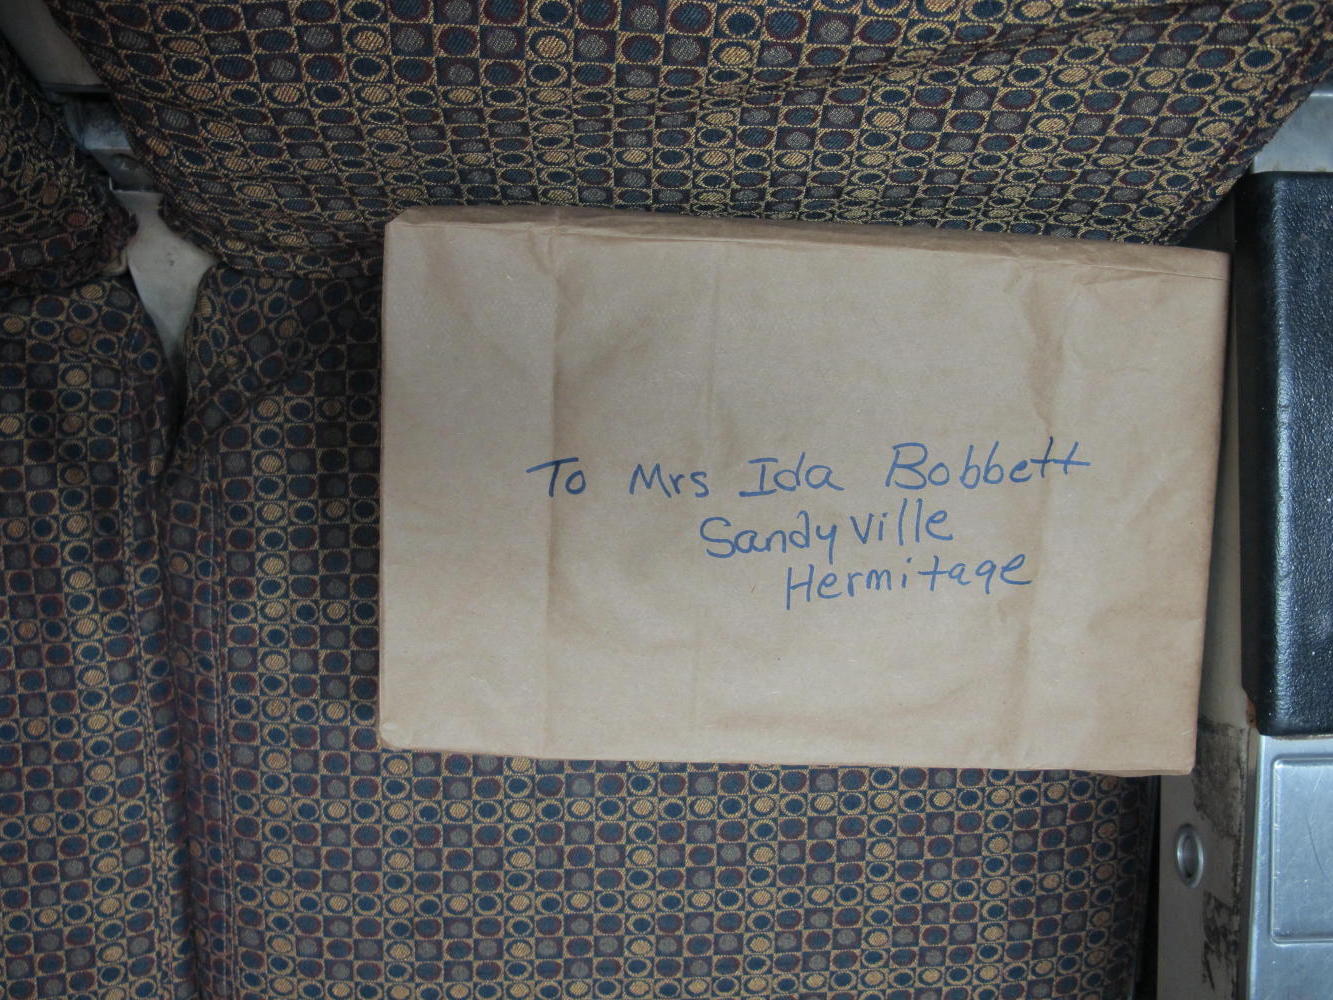 To Mrs Ida Bobbett
Sandyville
Hermitage